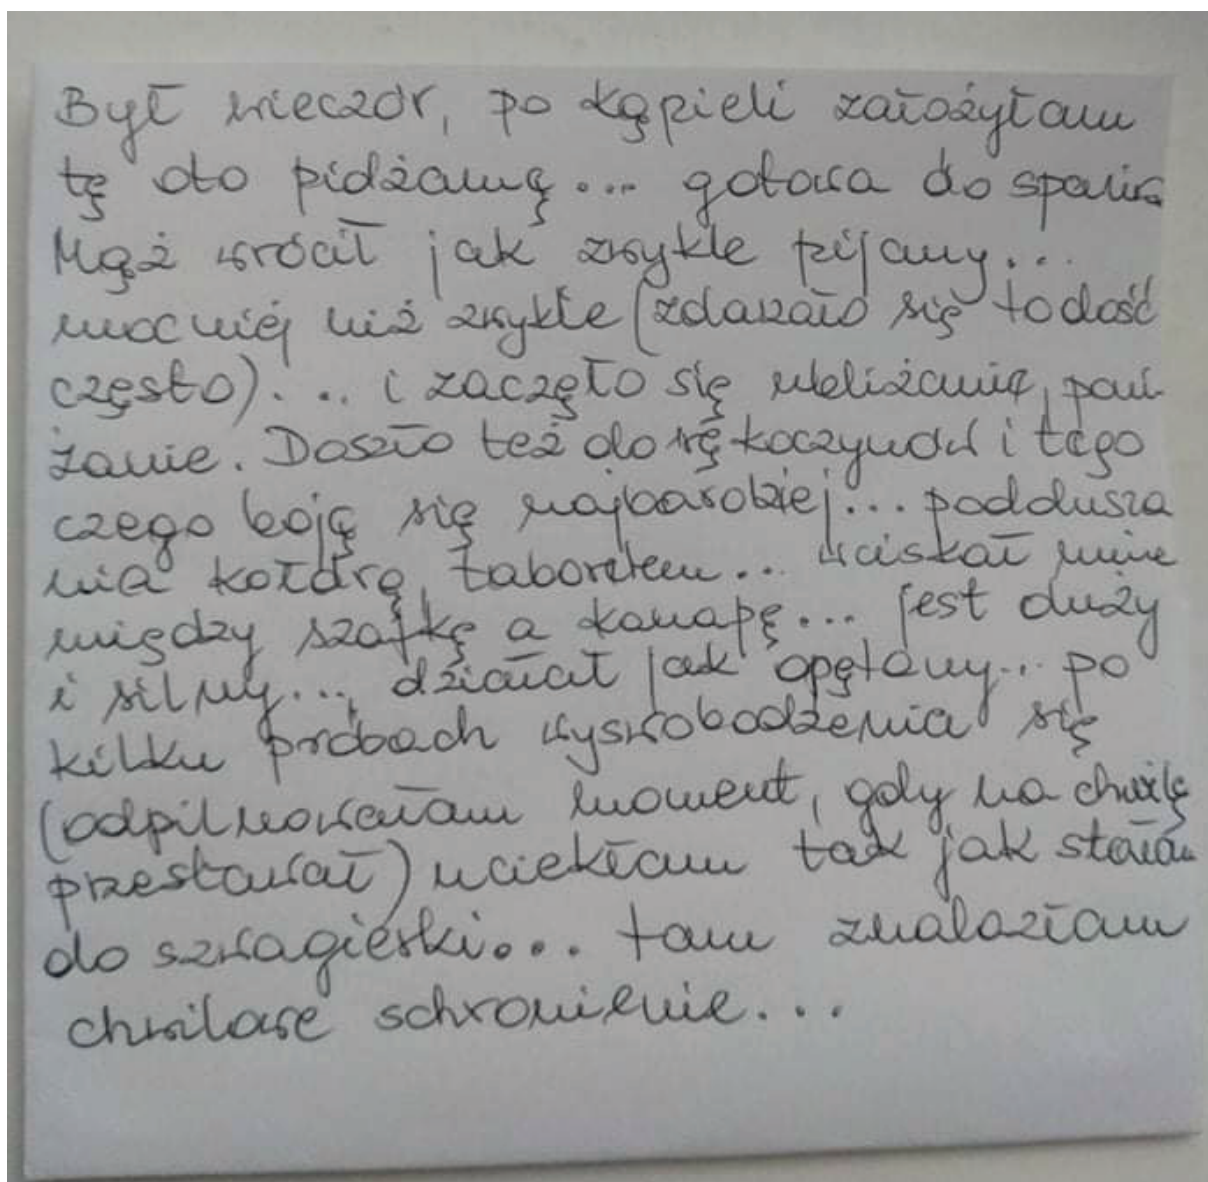 Był wieczór, po kąpieli założyłam
tę oto pidżamę... gotowa do spania
Mąż wrócił jak zwykle pijany...
mocniej niż zwykle (zdarzało się to dość
często)... i zaczęło się ubliżanie, poni-
żanie. Doszło też do rękoczynów i tego
czego boję się najbardziej... poddusza
nia kołdrą, taboretem... wciskał mnie
między szafkę a kanapę... jest duży
i silny..., działał jak opętany... po
kilku próbach wyswobodzenia się
(odpilnowałam moment, gdy na chwilę
przestawał) uciekłam tak jak stałam
do szwagierki... tam znalazłam
chwilowe schronienie...